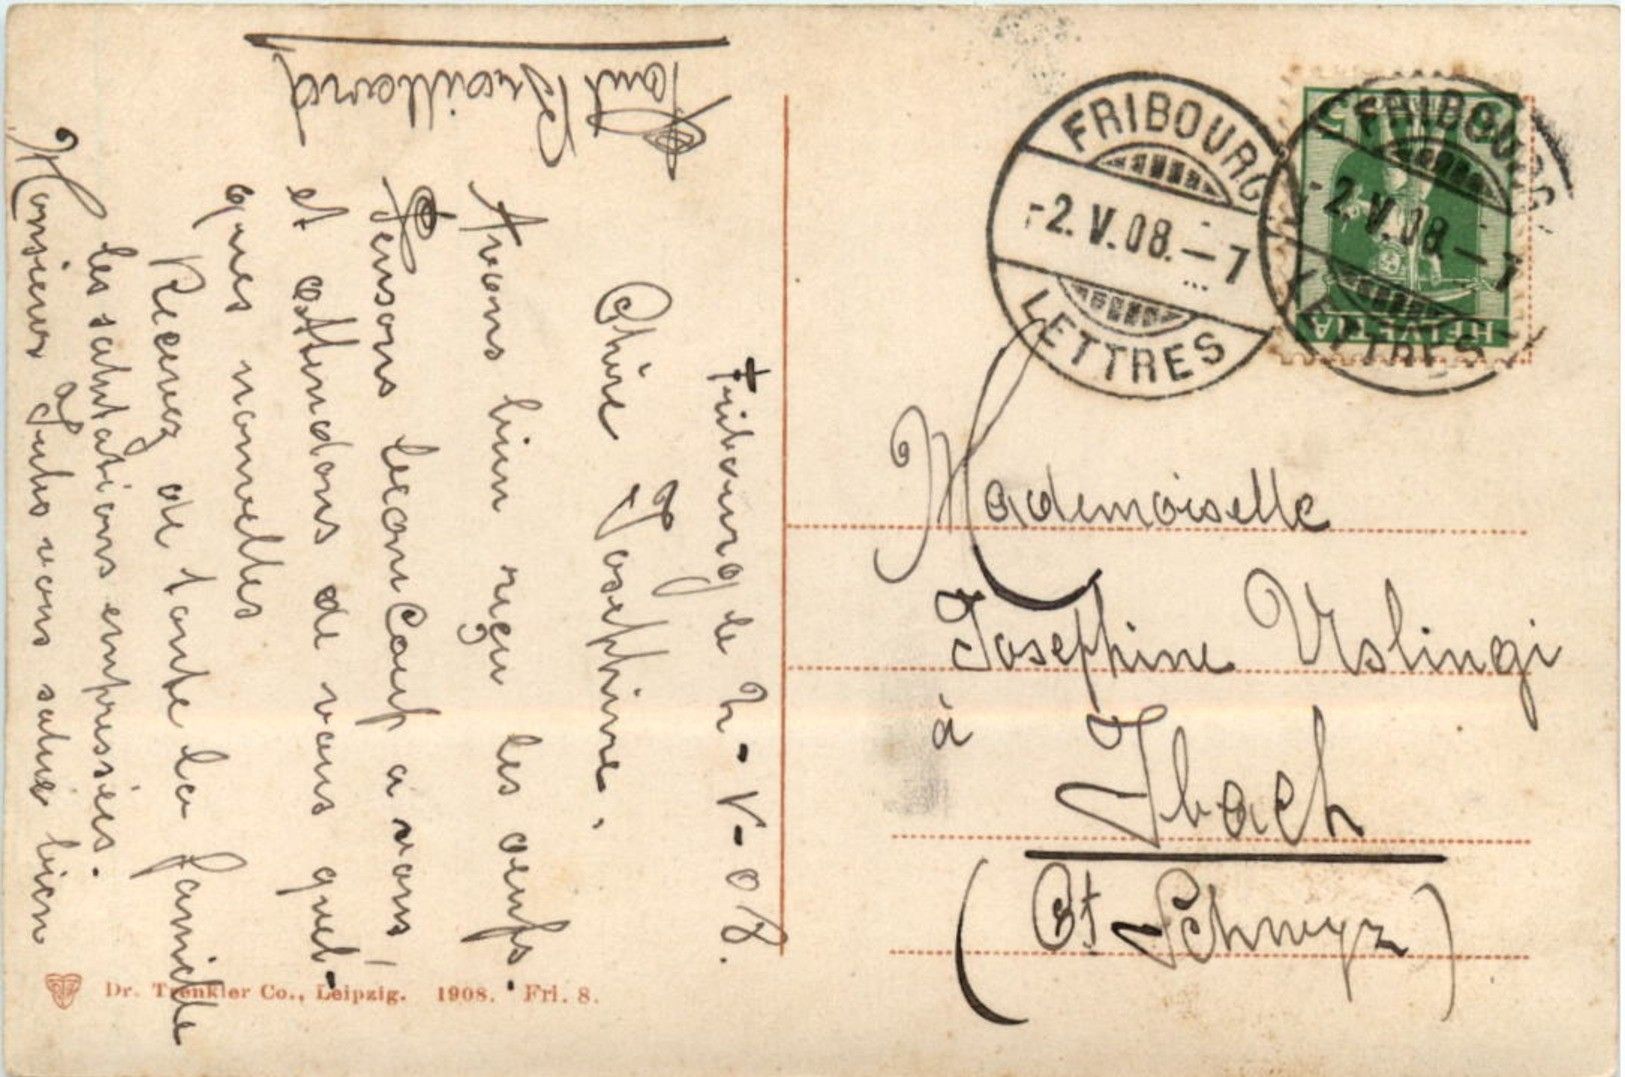 Fribourg le 2-V-08.
Chère Josephine.
Avons bien reçu les oeufs.
Pensons beaucoup a vous
et attendons de vous quel-
ques nouvelles
Recevez de toute la famille
les salutations empressées.
Monsieur Jules vous salue bien
Paul
Mademoiselle
Josephine Uslingi
à
Ibach
(Ct Schwyz)
FRIBOURG
-2.V.08.-7
LETTRES
FRIBOURG
-2.V.08.-7
LETTRES
5
HELVETIA
Dr. Trenkler Co., Leipzig. 1908. Fri. 8.